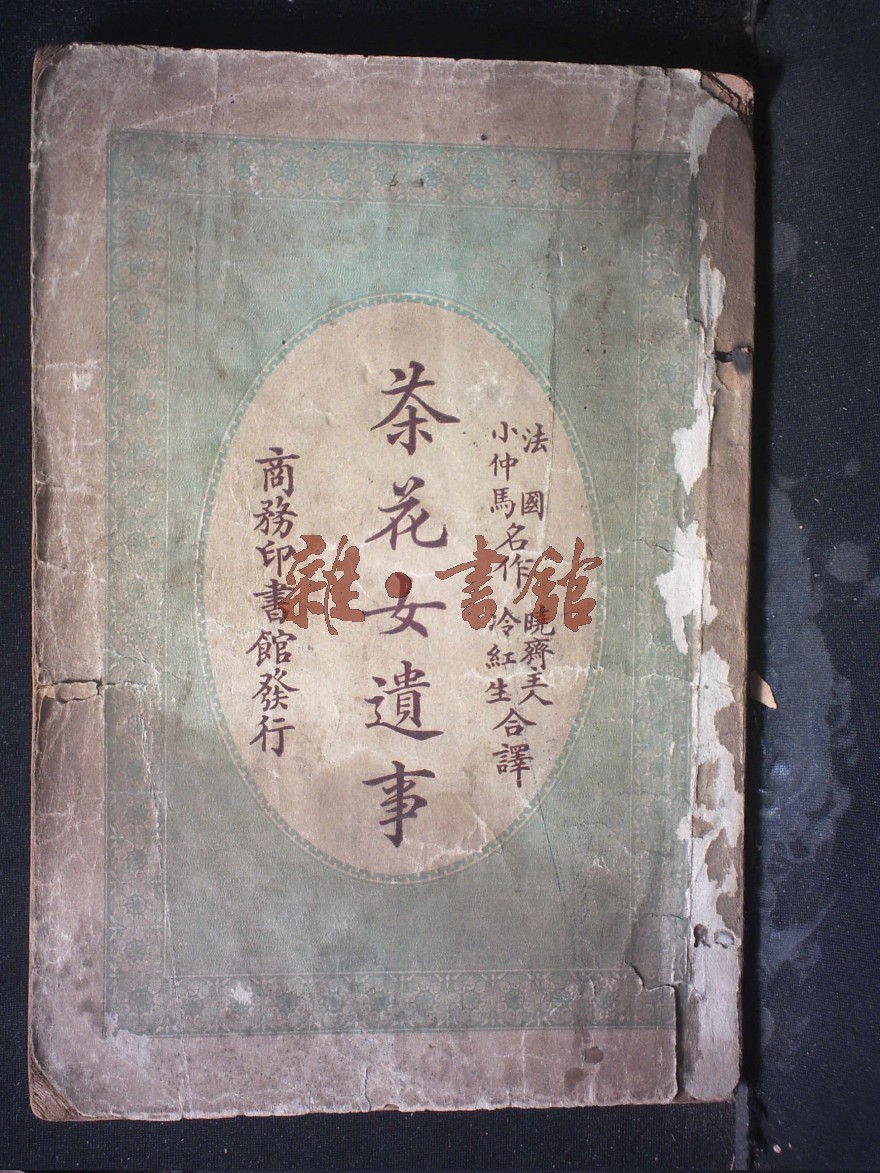 法國
小仲馬名作
曉齋主人
冷紅生
合譯
茶花女遺事
商務印書館發行
雜·書館